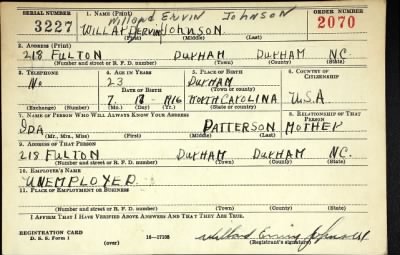 SERIAL NUMBER 1. NAME (Print) ORDER NUMBER
Willard ERVIN JOHNSON
3227 WILLARD ERVIN JOHNSON 2070
(First) (Middle) (Last)
2. ADDRESS (Print)
218 FULTON DURHAM DURHAM NC.
(Number and street or R. F. D. number) (Town) (County) (State)
3. TELEPHONE 4. AGE IN YEARS 5. PLACE OF BIRTH 6. COUNTRY OF CITIZENSHIP
No 23 DURHAM
DATE OF BIRTH (Town or county)
7 1916 NORTH CAROLINA U.S.A
(Exchange) (Number) (Mo.) (Day) (Yr.) (State or country)
7. NAME OF PERSON WHO WILL ALWAYS KNOW YOUR ADDRESS 8. RELATIONSHIP OF THAT PERSON
IDA PATTERSON MOTHER
(Mr., Mrs., Miss) (First) (Middle) (Last)
9. ADDRESS OF THAT PERSON
218 FULTON DURHAM DURHAM NC.
(Number and street or R. F. D. number) (Town) (County) (State)
10. EMPLOYER'S NAME
UNEMPLOYED
11. PLACE OF EMPLOYMENT OR BUSINESS
(Number and street or R. F. D. number) (Town) (County) (State)
I AFFIRM THAT I HAVE VERIFIED ABOVE ANSWERS AND THAT THEY ARE TRUE.
REGISTRATION CARD
D. S. S. Form 1 (over) 16—17105 Willard Ervin Johnson
(Registrant's signature)